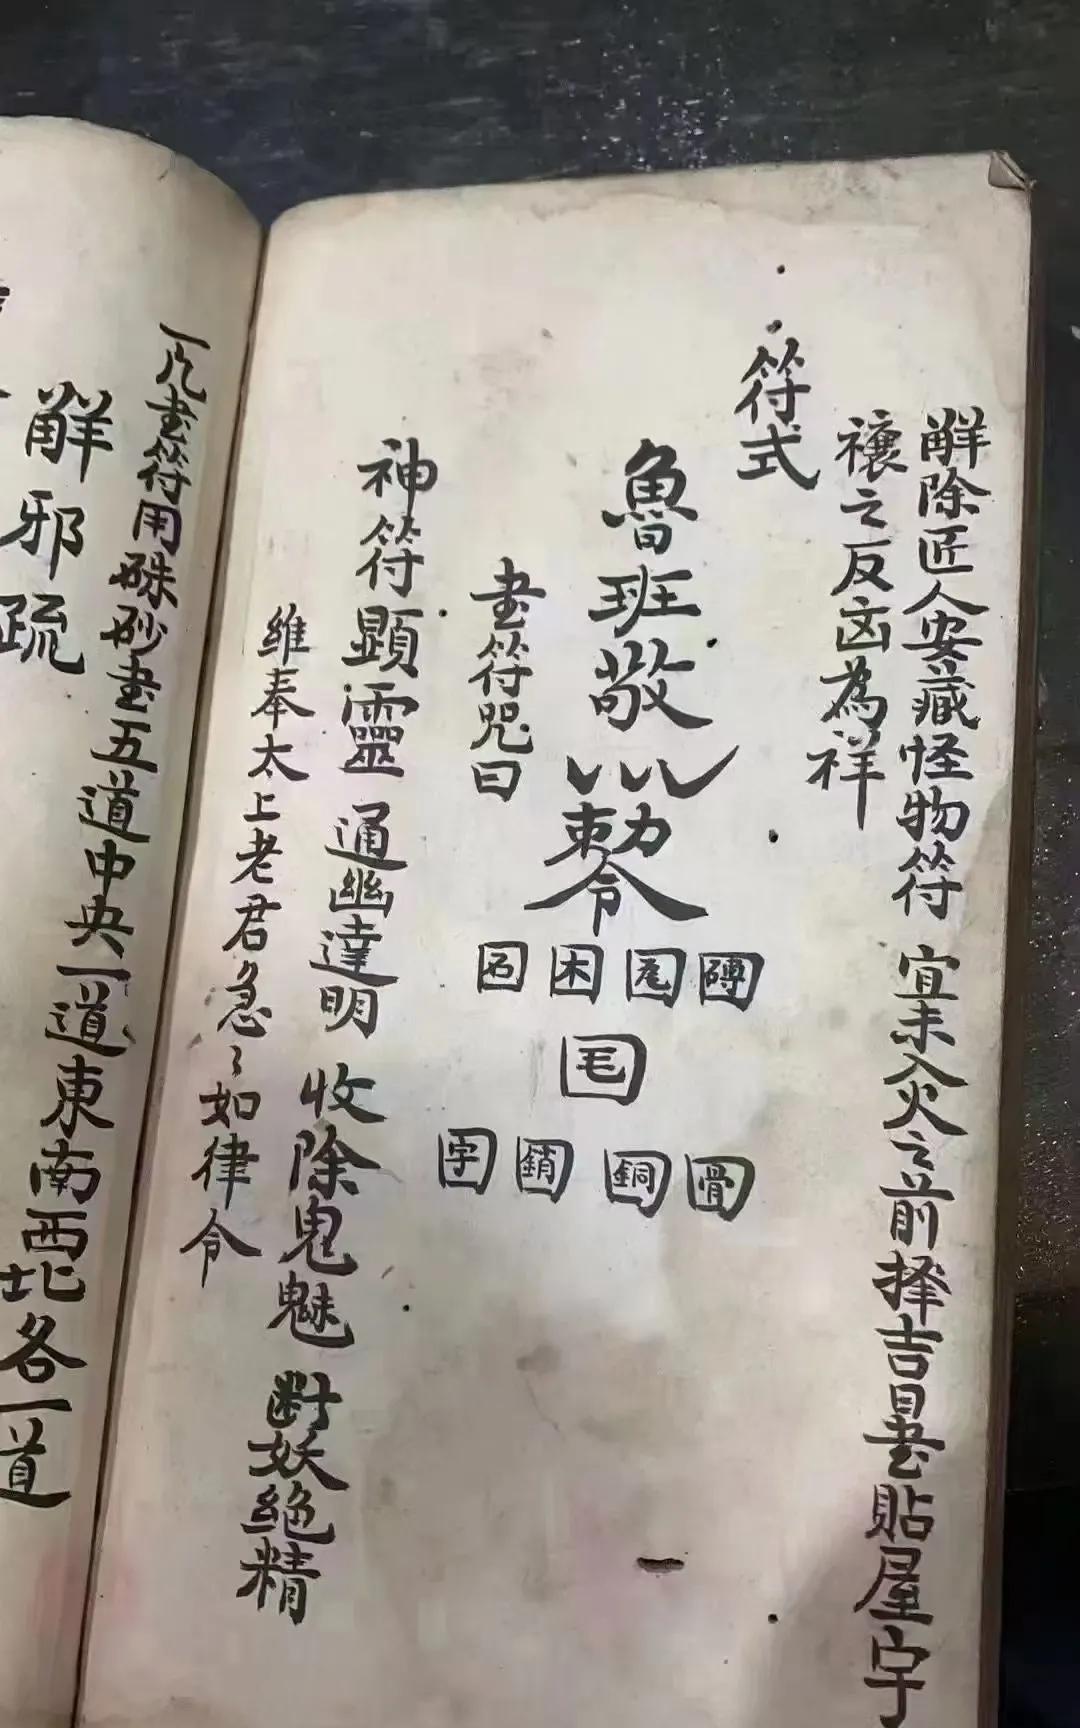 解除匠人安藏怪物符 宜未入火之前择吉日書貼屋宇
禳之反凶為祥
符式
魯班敬
勅令
磚 瓦 木 石
毛
骨 銅 銷 字
書符咒曰
神符顯靈 通幽達明 收除鬼魅 断妖絶精
維奉太上老君急〻如律令
一凡書符用硃砂書五道中央一道東南西北各一道
解邪疏